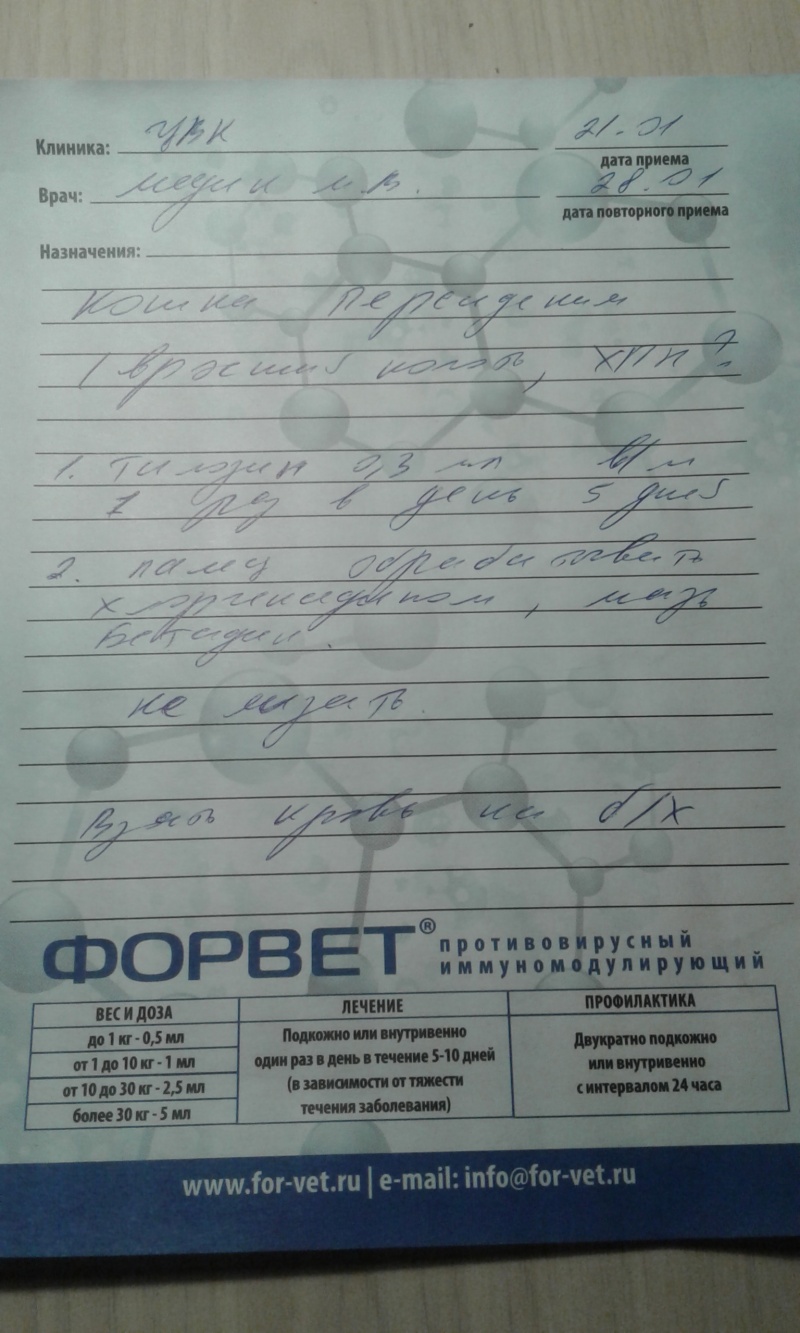 Клиника: ЦВК 21.01
дата приема
Врач: И.В. 28.01
дата повторного приема
Назначения:
Кошка
(вросший коготь, ХПН?
1. Тилозин 0,3 мл в/м
1 раз в день 5 дней
2. лапу обрабатывать
хлоргексидином, мазь
Бетадин.
не лизать.
Взять кровь на б/х
ФОРВЕТ® противовирусный
иммуномодулирующий
ВЕС И ДОЗА ЛЕЧЕНИЕ ПРОФИЛАКТИКА
до 1 кг - 0,5 мл
от 1 до 10 кг - 1 мл
от 10 до 30 кг - 2,5 мл
более 30 кг - 5 мл
Подкожно или внутривенно
один раз в день в течение 5-10 дней
(в зависимости от тяжести
течения заболевания)
Двукратно подкожно
или внутривенно
с интервалом 24 часа
www.for-vet.ru | e-mail: info@for-vet.ru